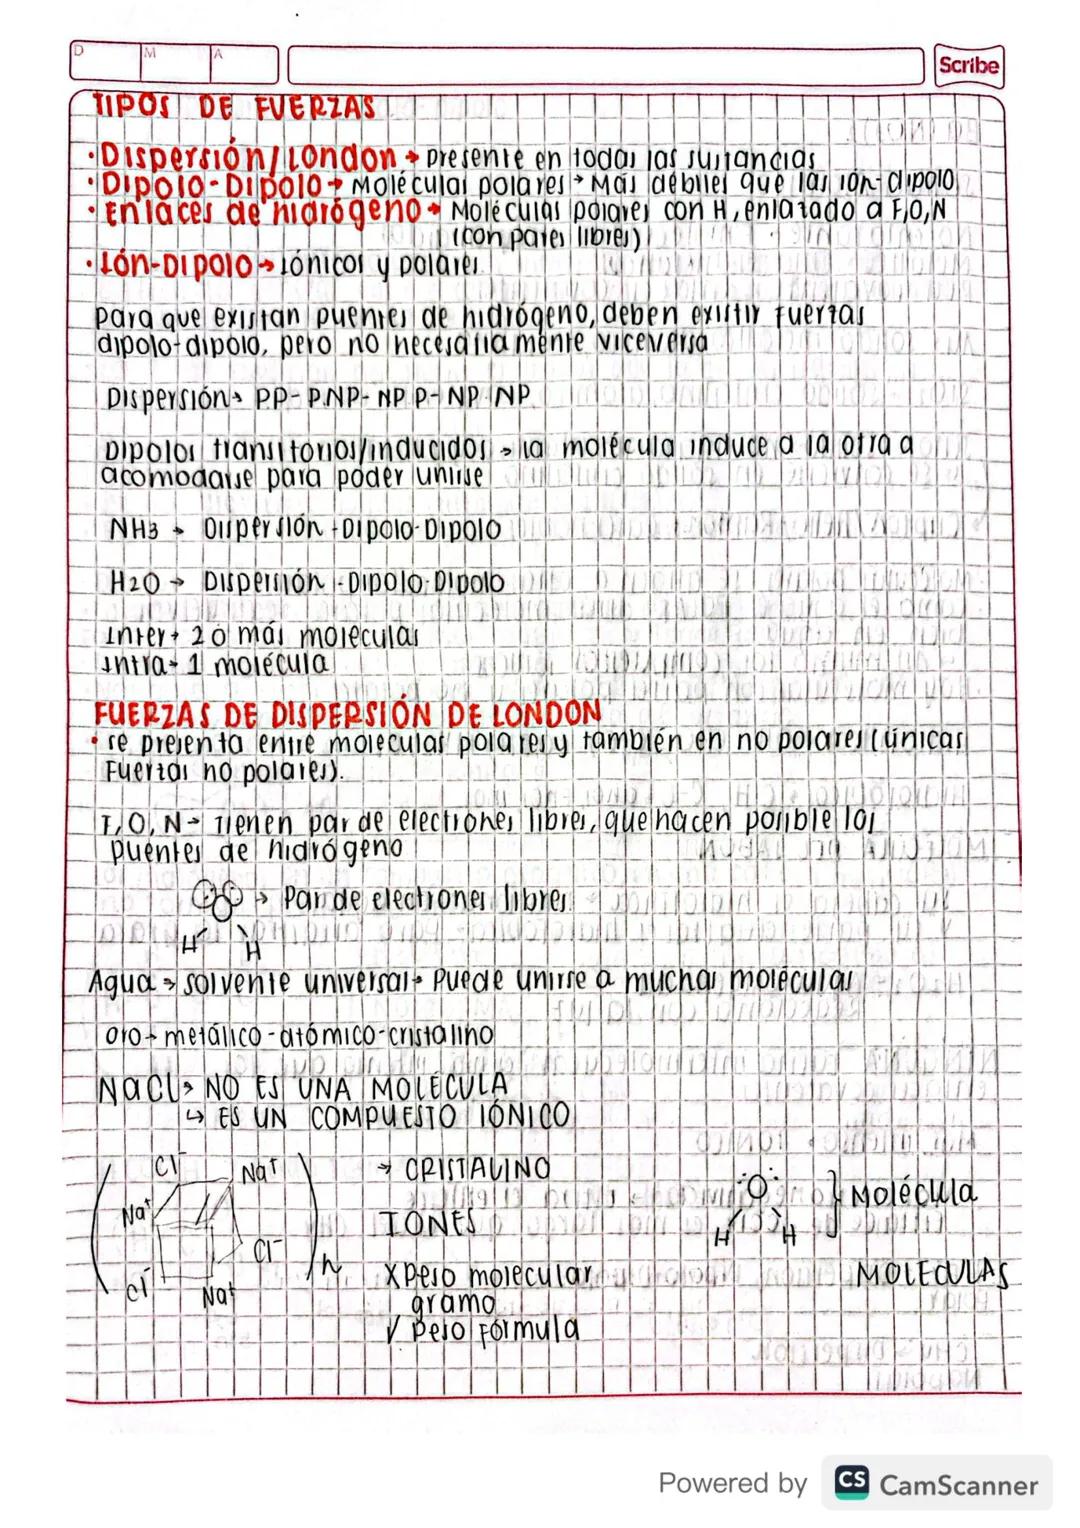 D M A
Scribe
TIPOS DE FUERZAS
·Dispersión/London → presente en todas las sustancias
·Dipolo-Dipolo → Moléculas polares → Más débiles que las ión-dipolo
·Enlaces de hidrógeno → Moléculas polares con H, enlazado a F,O,N
(con pares libres)
·Ión-Dipolo → iónicos y polares
Para que existan puentes de hidrógeno, deben existir fuerzas
dipolo-dipolo, pero no necesariamente viceversa
Dispersión → PP- P.NP- NP P- NP NP
Dipolos transitorios/inducidos → la molécula induce a la otra a
acomodarse para poder unirse
NH3 → Dispersión + Dipolo-Dipolo
H2O → Dispersión - Dipolo-Dipolo
Inter → 2 o más moléculas
Intra → 1 molécula
FUERZAS DE DISPERSIÓN DE LONDON
·se presenta entre moleculas polares y también en no polares (únicas
Fuerzas no polares).
F,O,N → Tienen par de electrones libres, que hacen posible los
puentes de hidrógeno
→ Par de electrones libres
H H
Agua → solvente universal → Puede unirse a muchas moléculas
oro → metálico-atómico-cristalino
NaCl → NO ES UNA MOLÉCULA
↳ ES UN COMPUESTO IÓNICO
Cl⁻ Na⁺ → CRISTALINO
Na⁺ Cl⁻ IONES
Cl⁻ Na⁺ n
O H H } Molécula
X peso molecular
gramo
√ Peso Fórmula
MOLECULAS
Powered by CS CamScanner